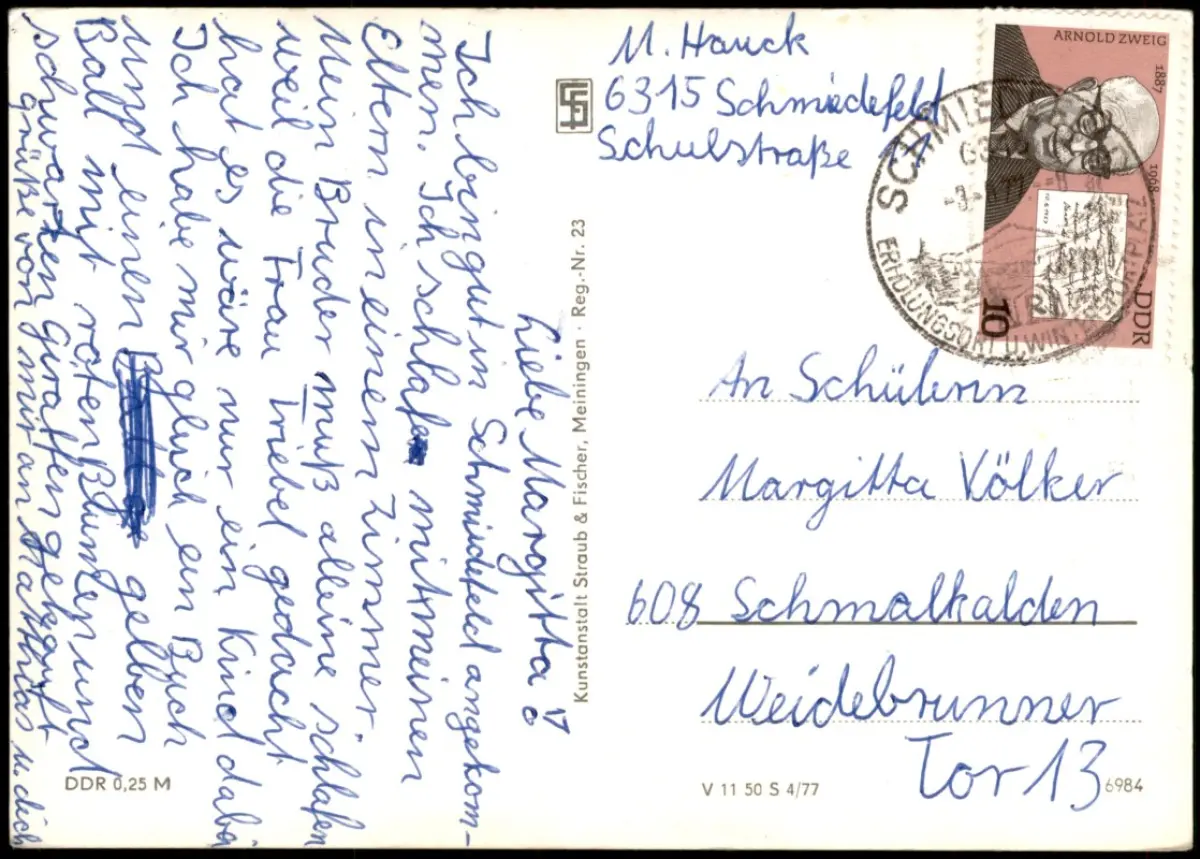 Liebe Margitta!
Ich bin gut in Schmiedefeld angekom-
men. Ich schlafe mit meinen
Eltern in einem Zimmer.
Mein Bruder muß alleine schlafen
weil die Frau Triebel gedacht
hat es wäre nur ein Kind dabei
Ich habe mir gleich ein Buch
und einen gelben
Ball mit roten Blumen und
schwarzen Giraffen gekauft
grüße von mir an Matthias u. dich
Kunstanstalt Straub & Fischer, Meiningen · Reg.-Nr. 23
DDR 0,25 M
M. Hauck
6315 Schmiedefeld
Schulstraße 11
ARNOLD ZWEIG
1887
1968
DDR
10
SCHMIE
ERHOLUNGSORT U. WINTERSPORTPLATZ
An Schülerin
Margitta Völker
608 Schmalkalden
Weidebrunner
Tor 13
V 11 50 S 4/77
6984